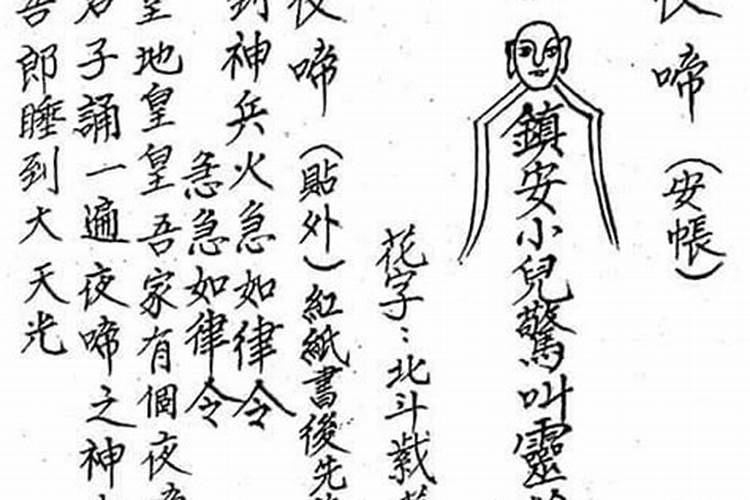 夜啼(安帳)
鎮安小兒驚叫靈
花字:北斗
夜啼(貼外)紅紙書後先
神兵火急如律令
急急如律令
皇地皇皇吾家有個夜
君子誦一遍夜啼之神
吾郎睡到大天光